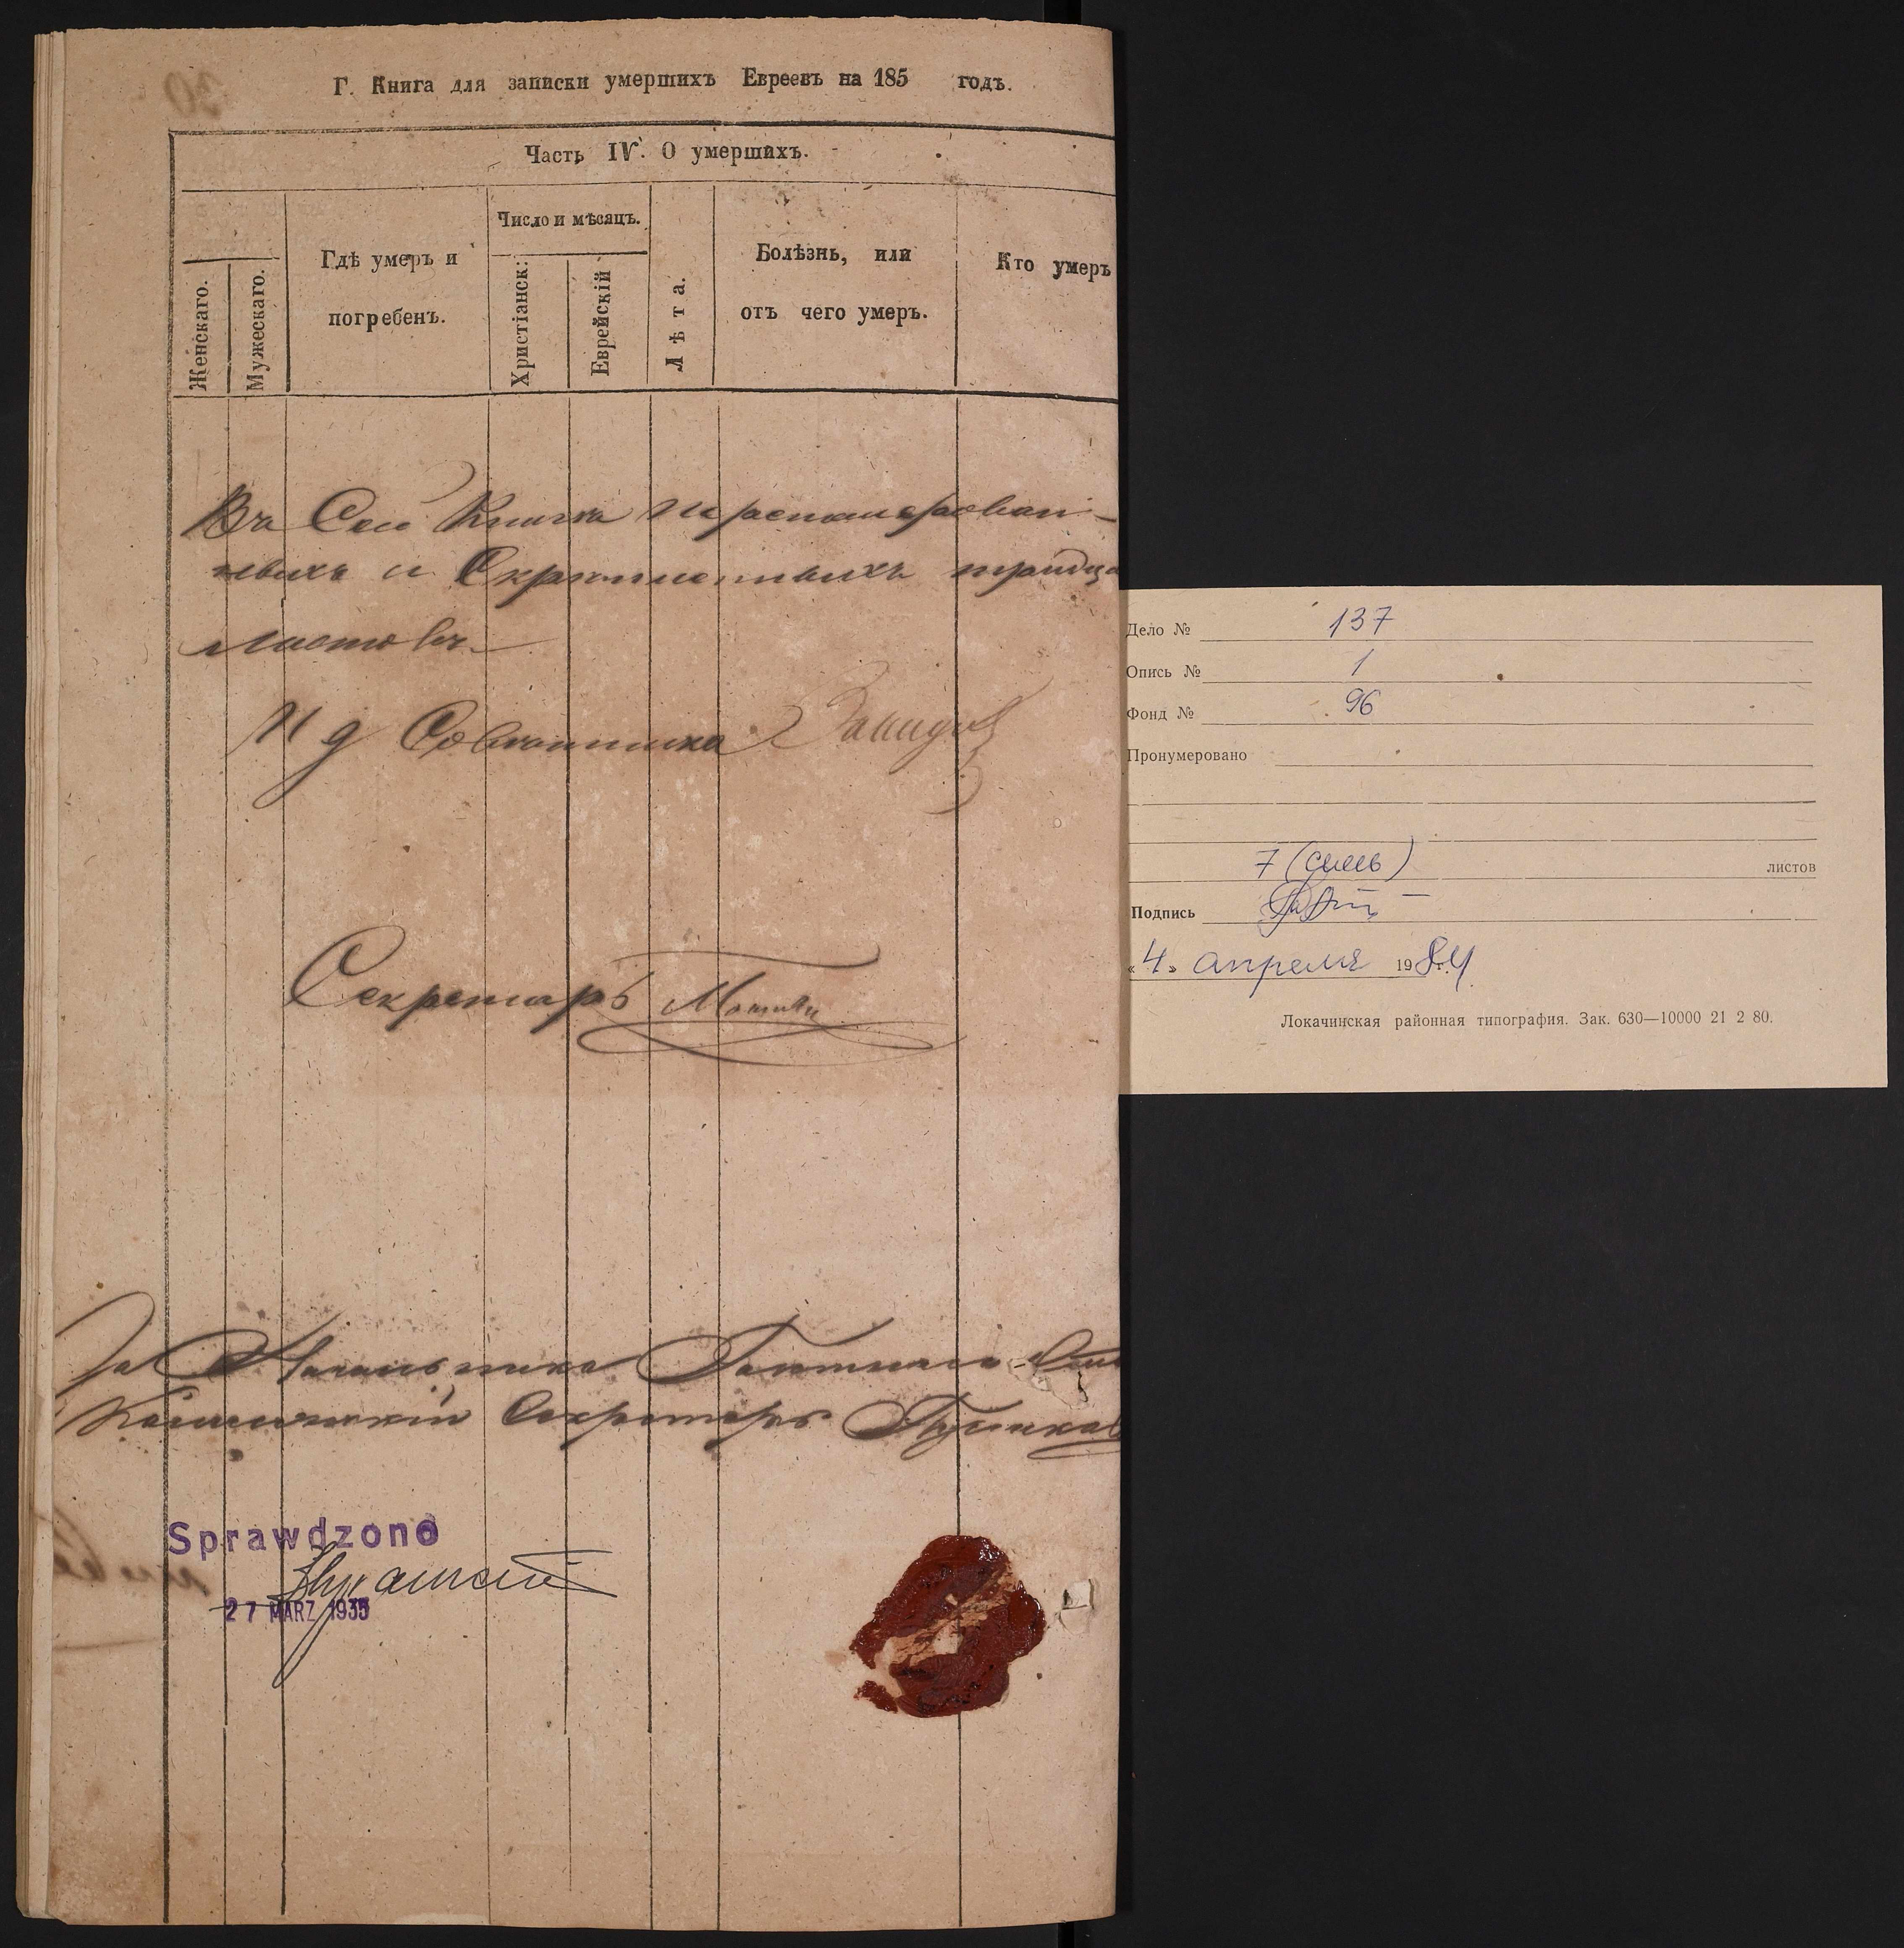 Г. Книга для записки умершихъ Евреевъ на 185 годъ.
Часть IV. О умершихъ.
Женскаго.
Мужескаго.
Гдѣ умеръ и
погребенъ.
Число и мѣсяцъ.
Христіанск:
Еврейскій
Лѣта.
Болѣзнь, или
отъ чего умеръ.
Кто умеръ
Въ Сей Книгѣ
и Скрѣпленныхъ тридца
листовъ
И д Совѣтника
Секретарь
За Начальника
Секретарь
Sprawdzono
27 MARZ 1935
Дело № 137
Опись № 1
Фонд № 96
Пронумеровано
7 (семь) листов
Подпись
«4» апреля 1984 г.
Локачинская районная типография. Зак. 630—10000 21 2 80.